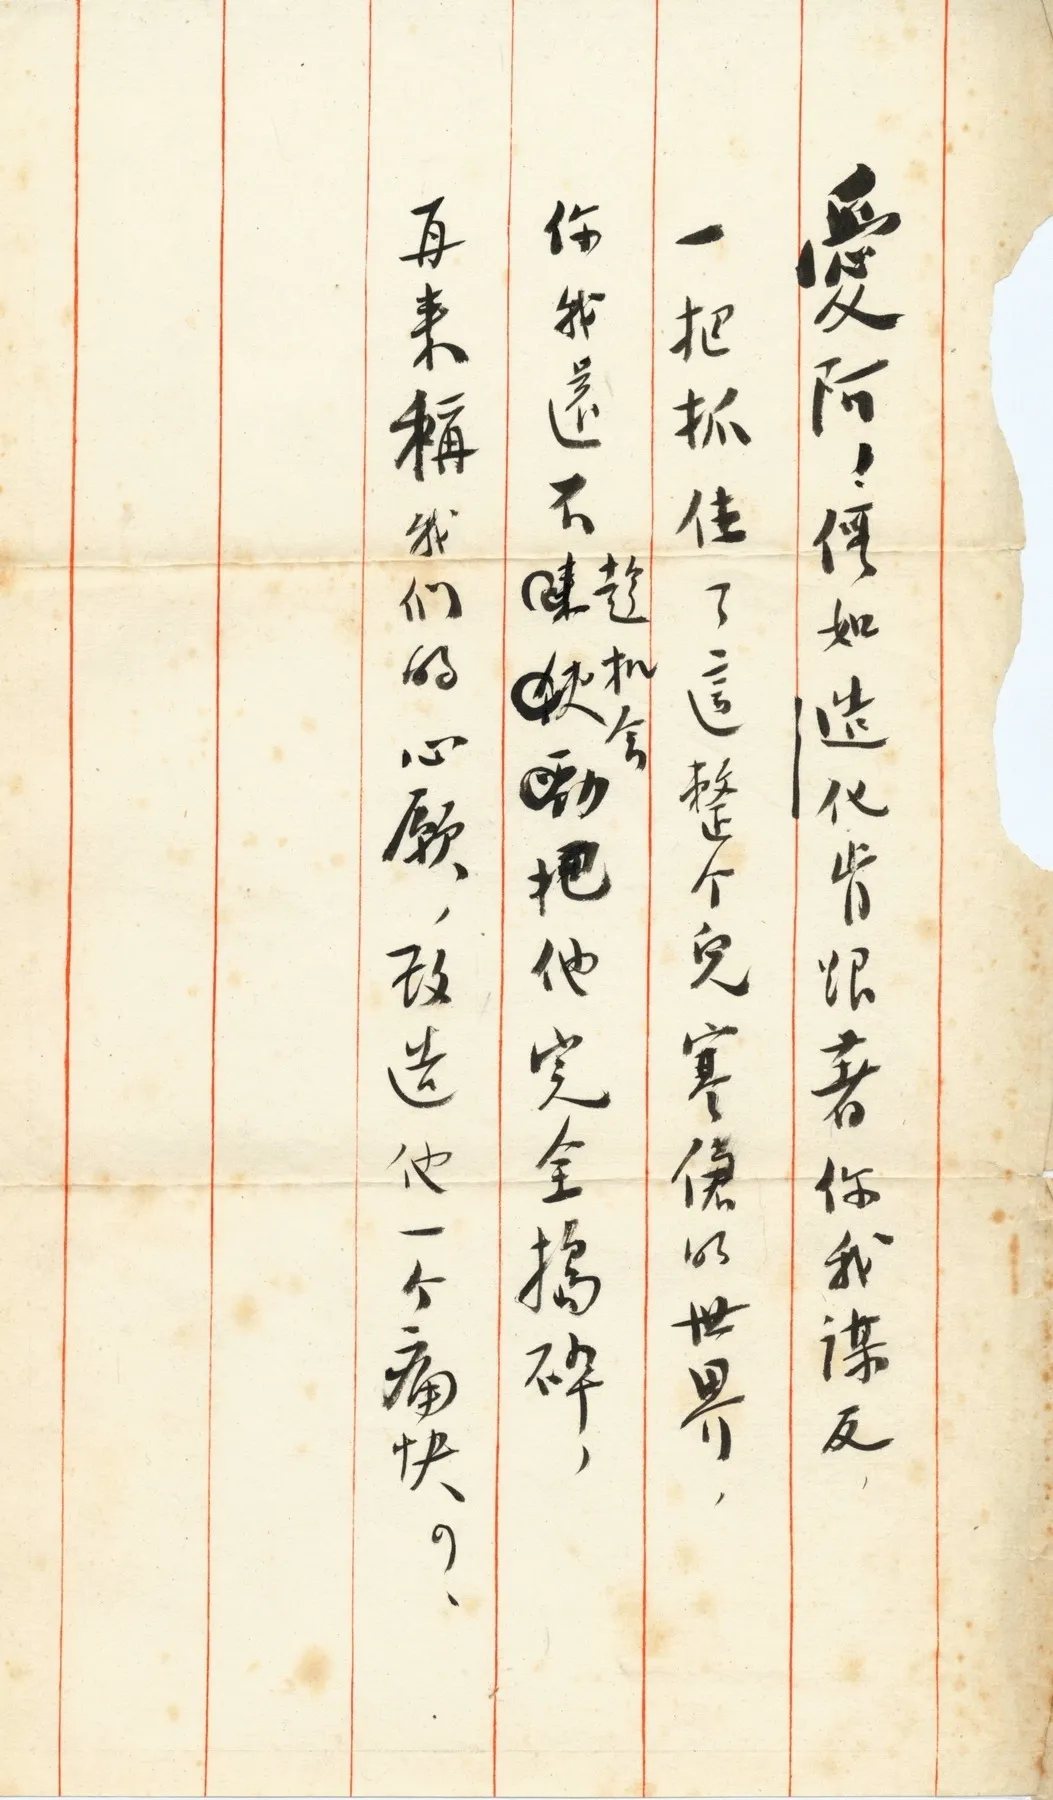 愛阿！假如造化肯跟著你我謀反，
一把抓住了這整个兒寒傖的世界，
你我還不趁机会把他完全搗碎，
再来稱我们的心願，改造他一个痛快？